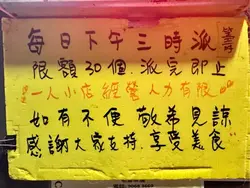 每日下午三時派籌
限額30個.派完即止
一人小店經營人力有限
如有不便 敬希見諒
感謝大家支持.享受美食